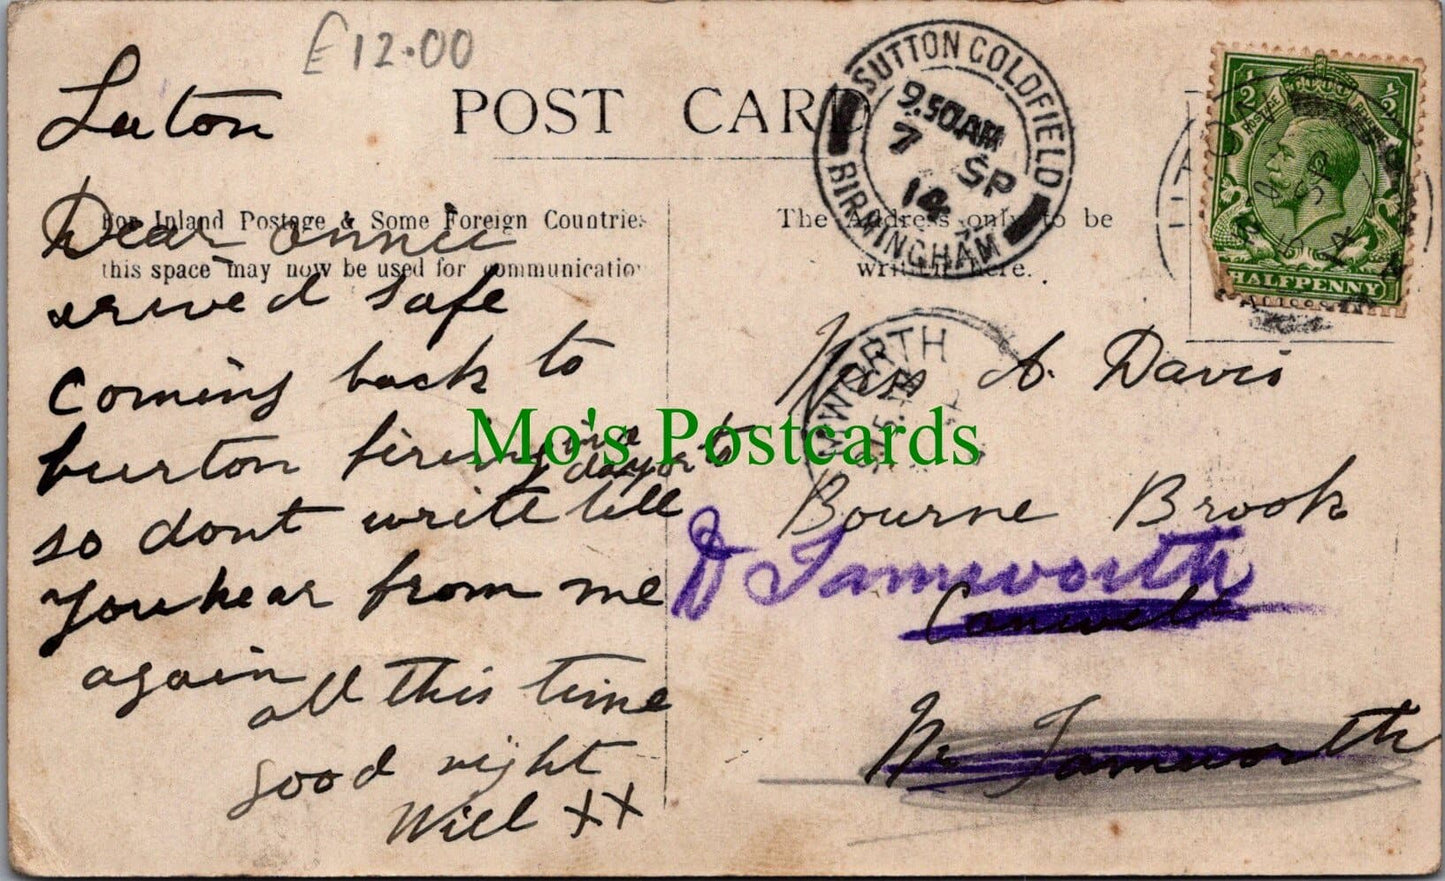 £12.00
Luton
POST CARD
For Inland Postage & Some Foreign Countries
this space may now be used for communication
The Address only to be
written here.
SUTTON COLDFIELD
9.50AM
7 SP
14
BIRMINGHAM
½ ½
POSTAGE REVENUE
HALFPENNY
Dear Annie
arived safe
Coming back to
burton
day or
so dont write till
you hear from me
again
all this time
good night
Will XX
WORTH
Mo's Postcards
A. Davis
Bourne Brook
Tamworth
Canwell
Nr Tamworth